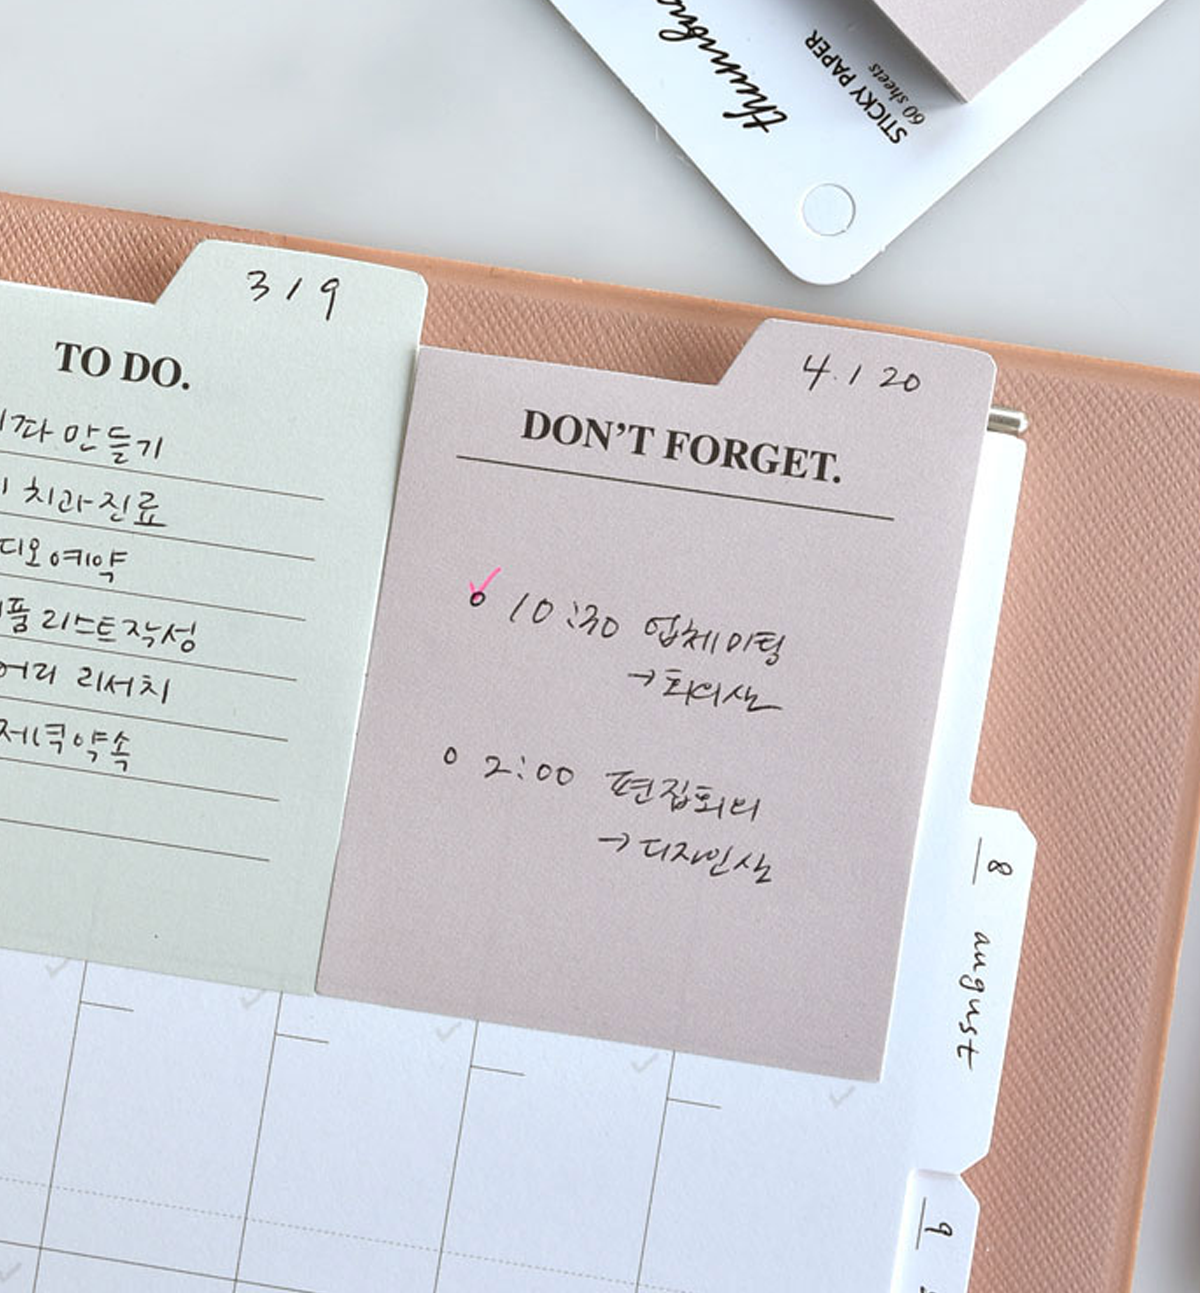 STICKY PAPER
60 sheets
3 / 9
TO DO.
만들기
치과진료
디오예약
품 리스트작성
어리 리서치
저녁약속
4. / 20
DON'T FORGET.
10:30 업체미팅
→ 회의실
2:00 편집회의
→ 디자인실
8
august
9